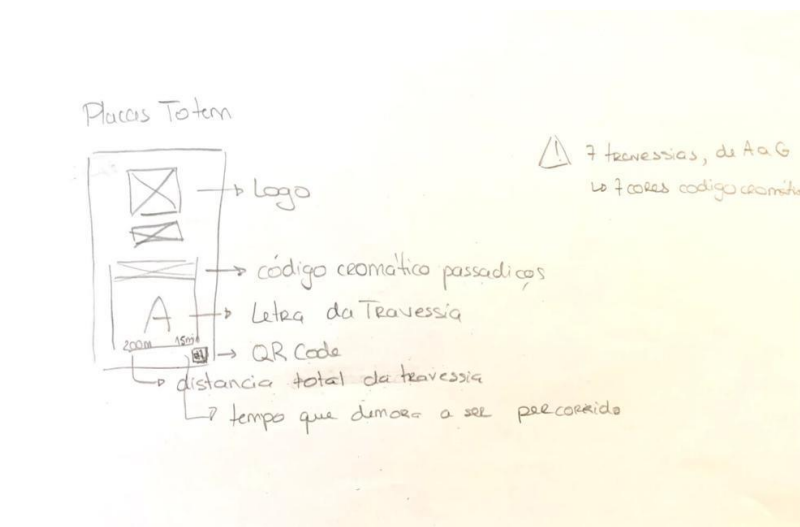 Placas Totem
⚠ 7 travessias, de A a G
↳ 7 cores codigo cromátic
→ Logo
→ código cromático passadiços
A → Letra da Travessia
200m 15min
→ QR Code
→ distancia total da travessia
→ tempo que demora a ser percorrido